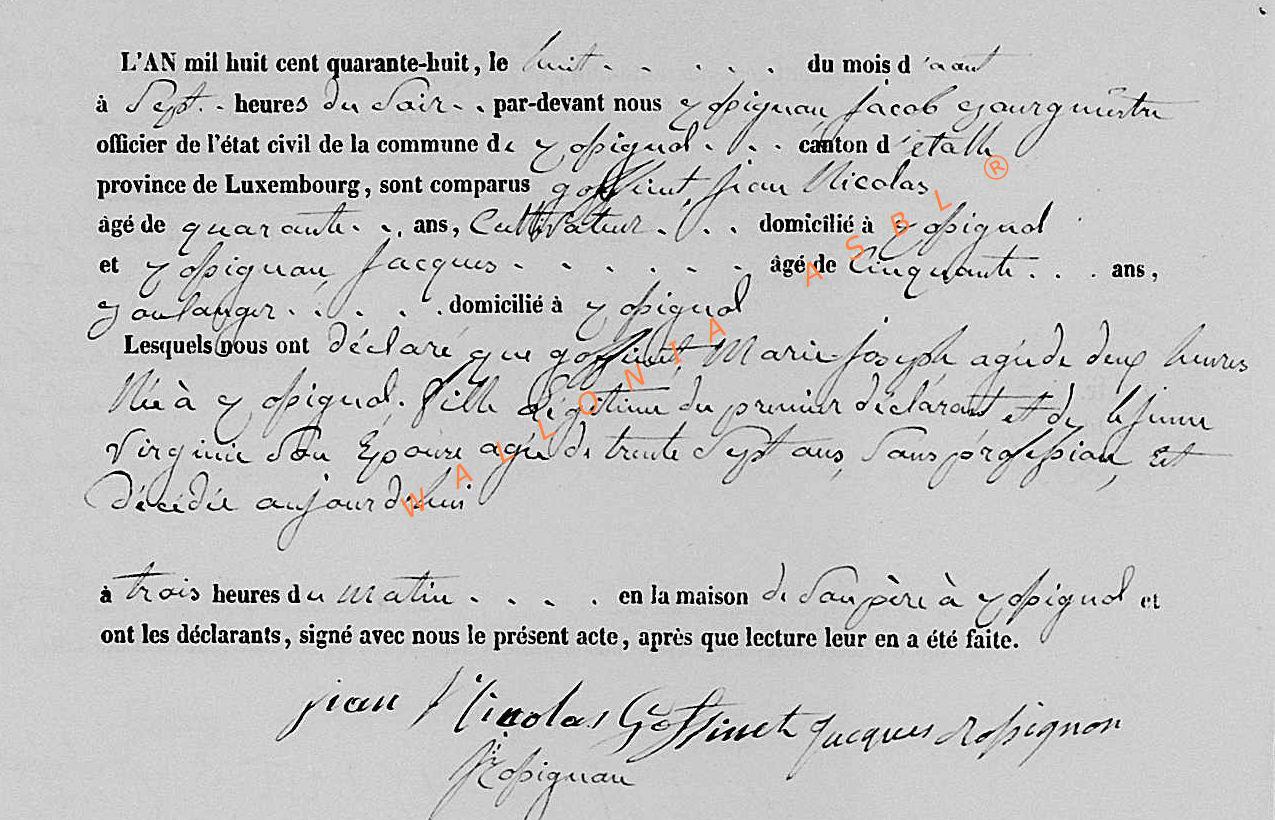 L'AN mil huit cent quarante-huit, le huit . . . . . du mois d'aout
à Sept . . heures du Soir . . par-devant nous Rossignon Jacob Bourgmestre
officier de l'état civil de la commune de Rossignol . . . canton d'étalle
province de Luxembourg, sont comparus goffinet, Jean Nicolas
âgé de quarante . . ans, Cultivateur . . . domicilié à Rossignol
et Rossignon, Jacques . . . . . . âgé de Cinquante . . . ans,
Boulanger . . . . . domicilié à Rossignol
Lesquels nous ont déclaré que goffinet, Marie Joseph agée de deux heures
Née à Rossignol. fille légitime du premier déclarant et de lejeune
Virginie Son Epouse agée de trente Sept ans, Sans profession, Est
décédée aujourd'hui
à trois heures du matin . . . . en la maison de Son père à Rossignol et
ont les déclarants, signé avec nous le présent acte, après que lecture leur en a été faite.
jean Nicolas Goffinet Jacques Rossignon
Rossignon
WALLONIA ASBL ®